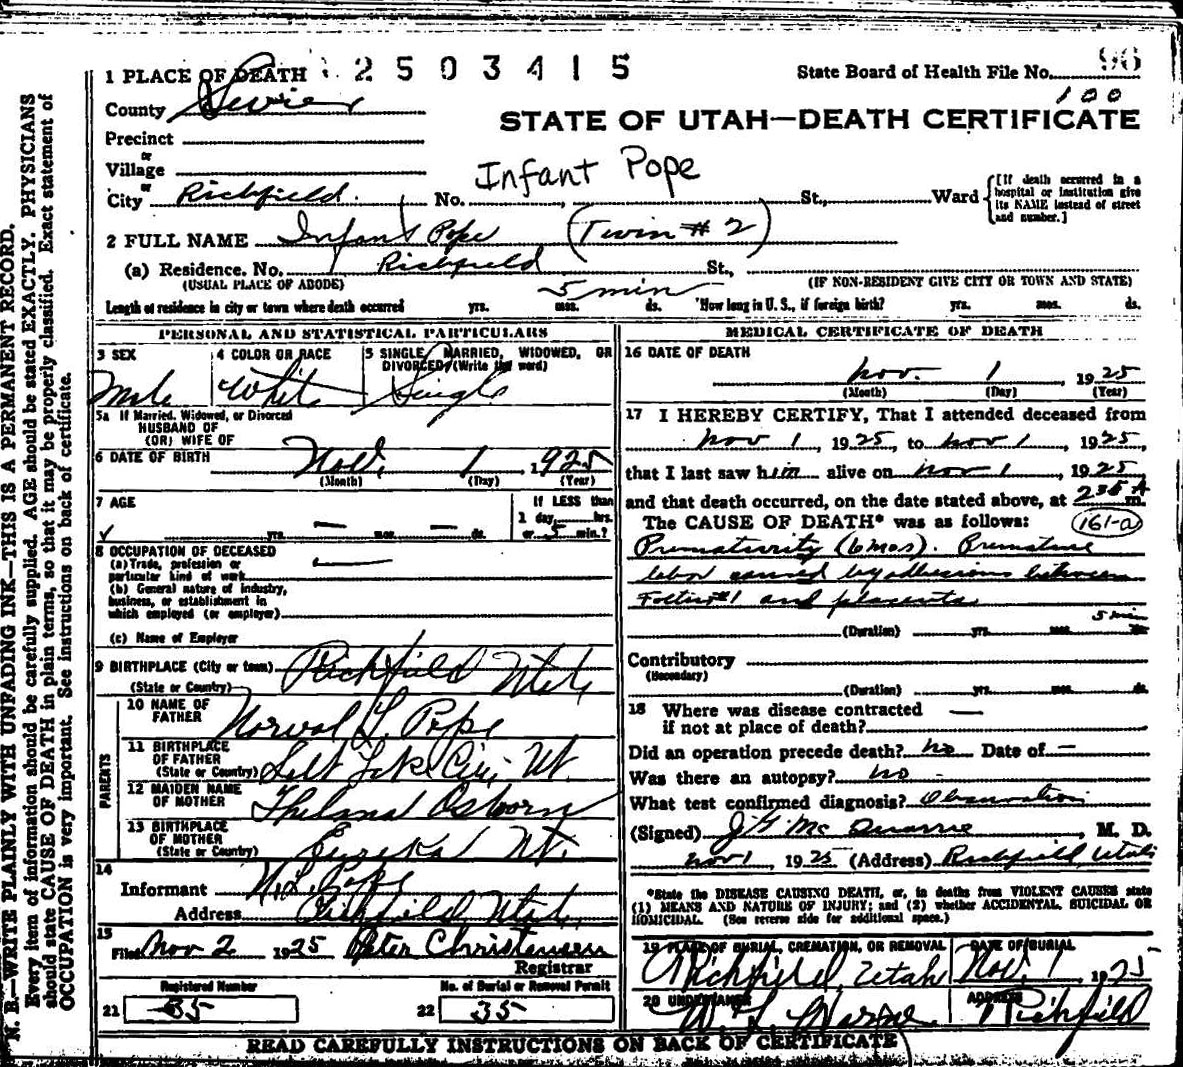 96
1 PLACE OF DEATH 2503415 State Board of Health File No.
100
County Sevier
STATE OF UTAH—DEATH CERTIFICATE
Precinct
or
Village
or
City Richfield No. Infant Pope St., Ward
[If death occurred in a hospital or institution give its NAME instead of street and number.]
2 FULL NAME Infant Pope (Twin #2)
(a) Residence. No. Richfield St.,
(USUAL PLACE OF ABODE) (IF NON-RESIDENT GIVE CITY OR TOWN AND STATE)
Length of residence in city or town where death occurred yrs. mos. 5 min ds. How long in U. S., if foreign birth? yrs. mos. ds.
PERSONAL AND STATISTICAL PARTICULARS
3 SEX
Male
4 COLOR OR RACE
White
5 SINGLE, MARRIED, WIDOWED, OR DIVORCED (Write the word)
Single
5a If Married, Widowed, or Divorced
HUSBAND OF
(OR) WIFE OF
6 DATE OF BIRTH Nov. 1 1925
(Month) (Day) (Year)
7 AGE
yrs. — mos. — ds.
If LESS than
1 day, hrs.
or 5 min.?
8 OCCUPATION OF DECEASED
(a) Trade, profession or
particular kind of work
(b) General nature of industry,
business, or establishment in
which employed (or employer)
(c) Name of Employer
9 BIRTHPLACE (City or town) Richfield Utah
(State or Country)
PARENTS
10 NAME OF FATHER Norval L. Pope
11 BIRTHPLACE OF FATHER (State or Country) Salt Lake City Ut.
12 MAIDEN NAME OF MOTHER Osborn
13 BIRTHPLACE OF MOTHER (State or Country) Eureka Ut.
14
Informant N. L. Pope
Address Richfield, Utah,
15
Filed Nov 2 1925 Peter Christensen
Registrar
Registered Number
21 35
No. of Burial or Removal Permit
22 35
MEDICAL CERTIFICATE OF DEATH
16 DATE OF DEATH
Nov. 1, 1925
(Month) (Day) (Year)
17 I HEREBY CERTIFY, That I attended deceased from
Nov 1, 1925, to Nov 1, 1925,
that I last saw him alive on Nov 1, 1925
and that death occurred, on the date stated above, at 235 A m.
The CAUSE OF DEATH* was as follows: 161-a
Prematurity (6 mos). Premature
labor caused by adhesions between
Foetus #1 and placenta
5 min
(Duration) yrs. mos. ds.
Contributory
(Secondary)
(Duration) yrs. mos. ds.
18 Where was disease contracted
if not at place of death? —
Did an operation precede death? No Date of —
Was there an autopsy? no -
What test confirmed diagnosis? Observation
(Signed) J G McQuarrie, M. D.
Nov 1, 1925 (Address) Richfield, Utah
*State the DISEASE CAUSING DEATH, or, in deaths from VIOLENT CAUSES state
(1) MEANS AND NATURE OF INJURY; and (2) whether ACCIDENTAL, SUICIDAL OR
HOMICIDAL. (See reverse side for additional space.)
19 PLACE OF BURIAL, CREMATION, OR REMOVAL
Richfield, Utah
DATE OF BURIAL
Nov. 1 1925
20 UNDERTAKER
W. L.
ADDRESS
Richfield
READ CAREFULLY INSTRUCTIONS ON BACK OF CERTIFICATE
N. B.—WRITE PLAINLY WITH UNFADING INK—THIS IS A PERMANENT RECORD.
Every item of information should be carefully supplied. AGE should be stated EXACTLY. PHYSICIANS
should state CAUSE OF DEATH in plain terms, so that it may be properly classified. Exact statement of
OCCUPATION is very important. See instructions on back of certificate.